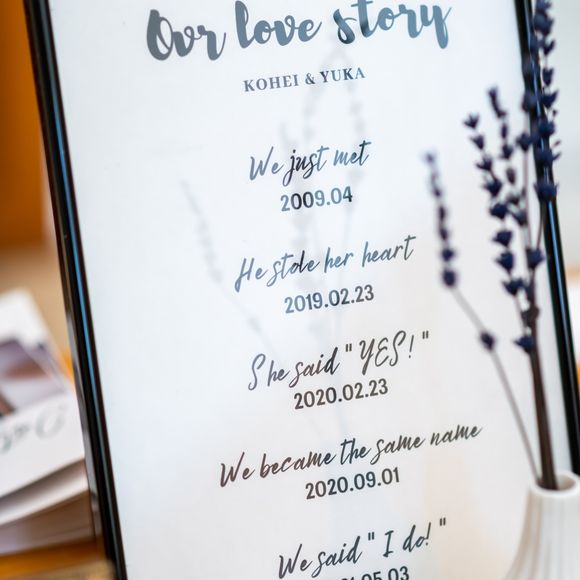 Our love story
KOHEI & YUKA
We just met
2009.04
He stole her heart
2019.02.23
She said " YES! "
2020.02.23
We became the same name
2020.09.01
We said " I do! "